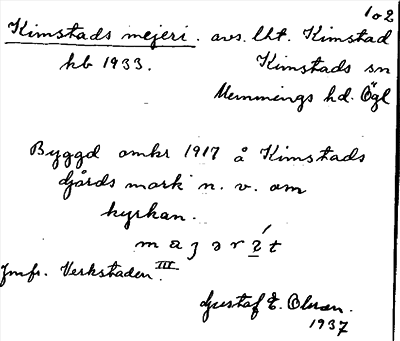 1 o 2
Kimstads mejeri. avs. lht. Kimstad
hb 1933. Kimstads sn
Memmings hd. Ögl
Byggd omkr 1917 å Kimstads
djärds mark n. v. om
kyrkan.
Jmfr. Verkstaden III.
Gustaf E. Olsson.
1937